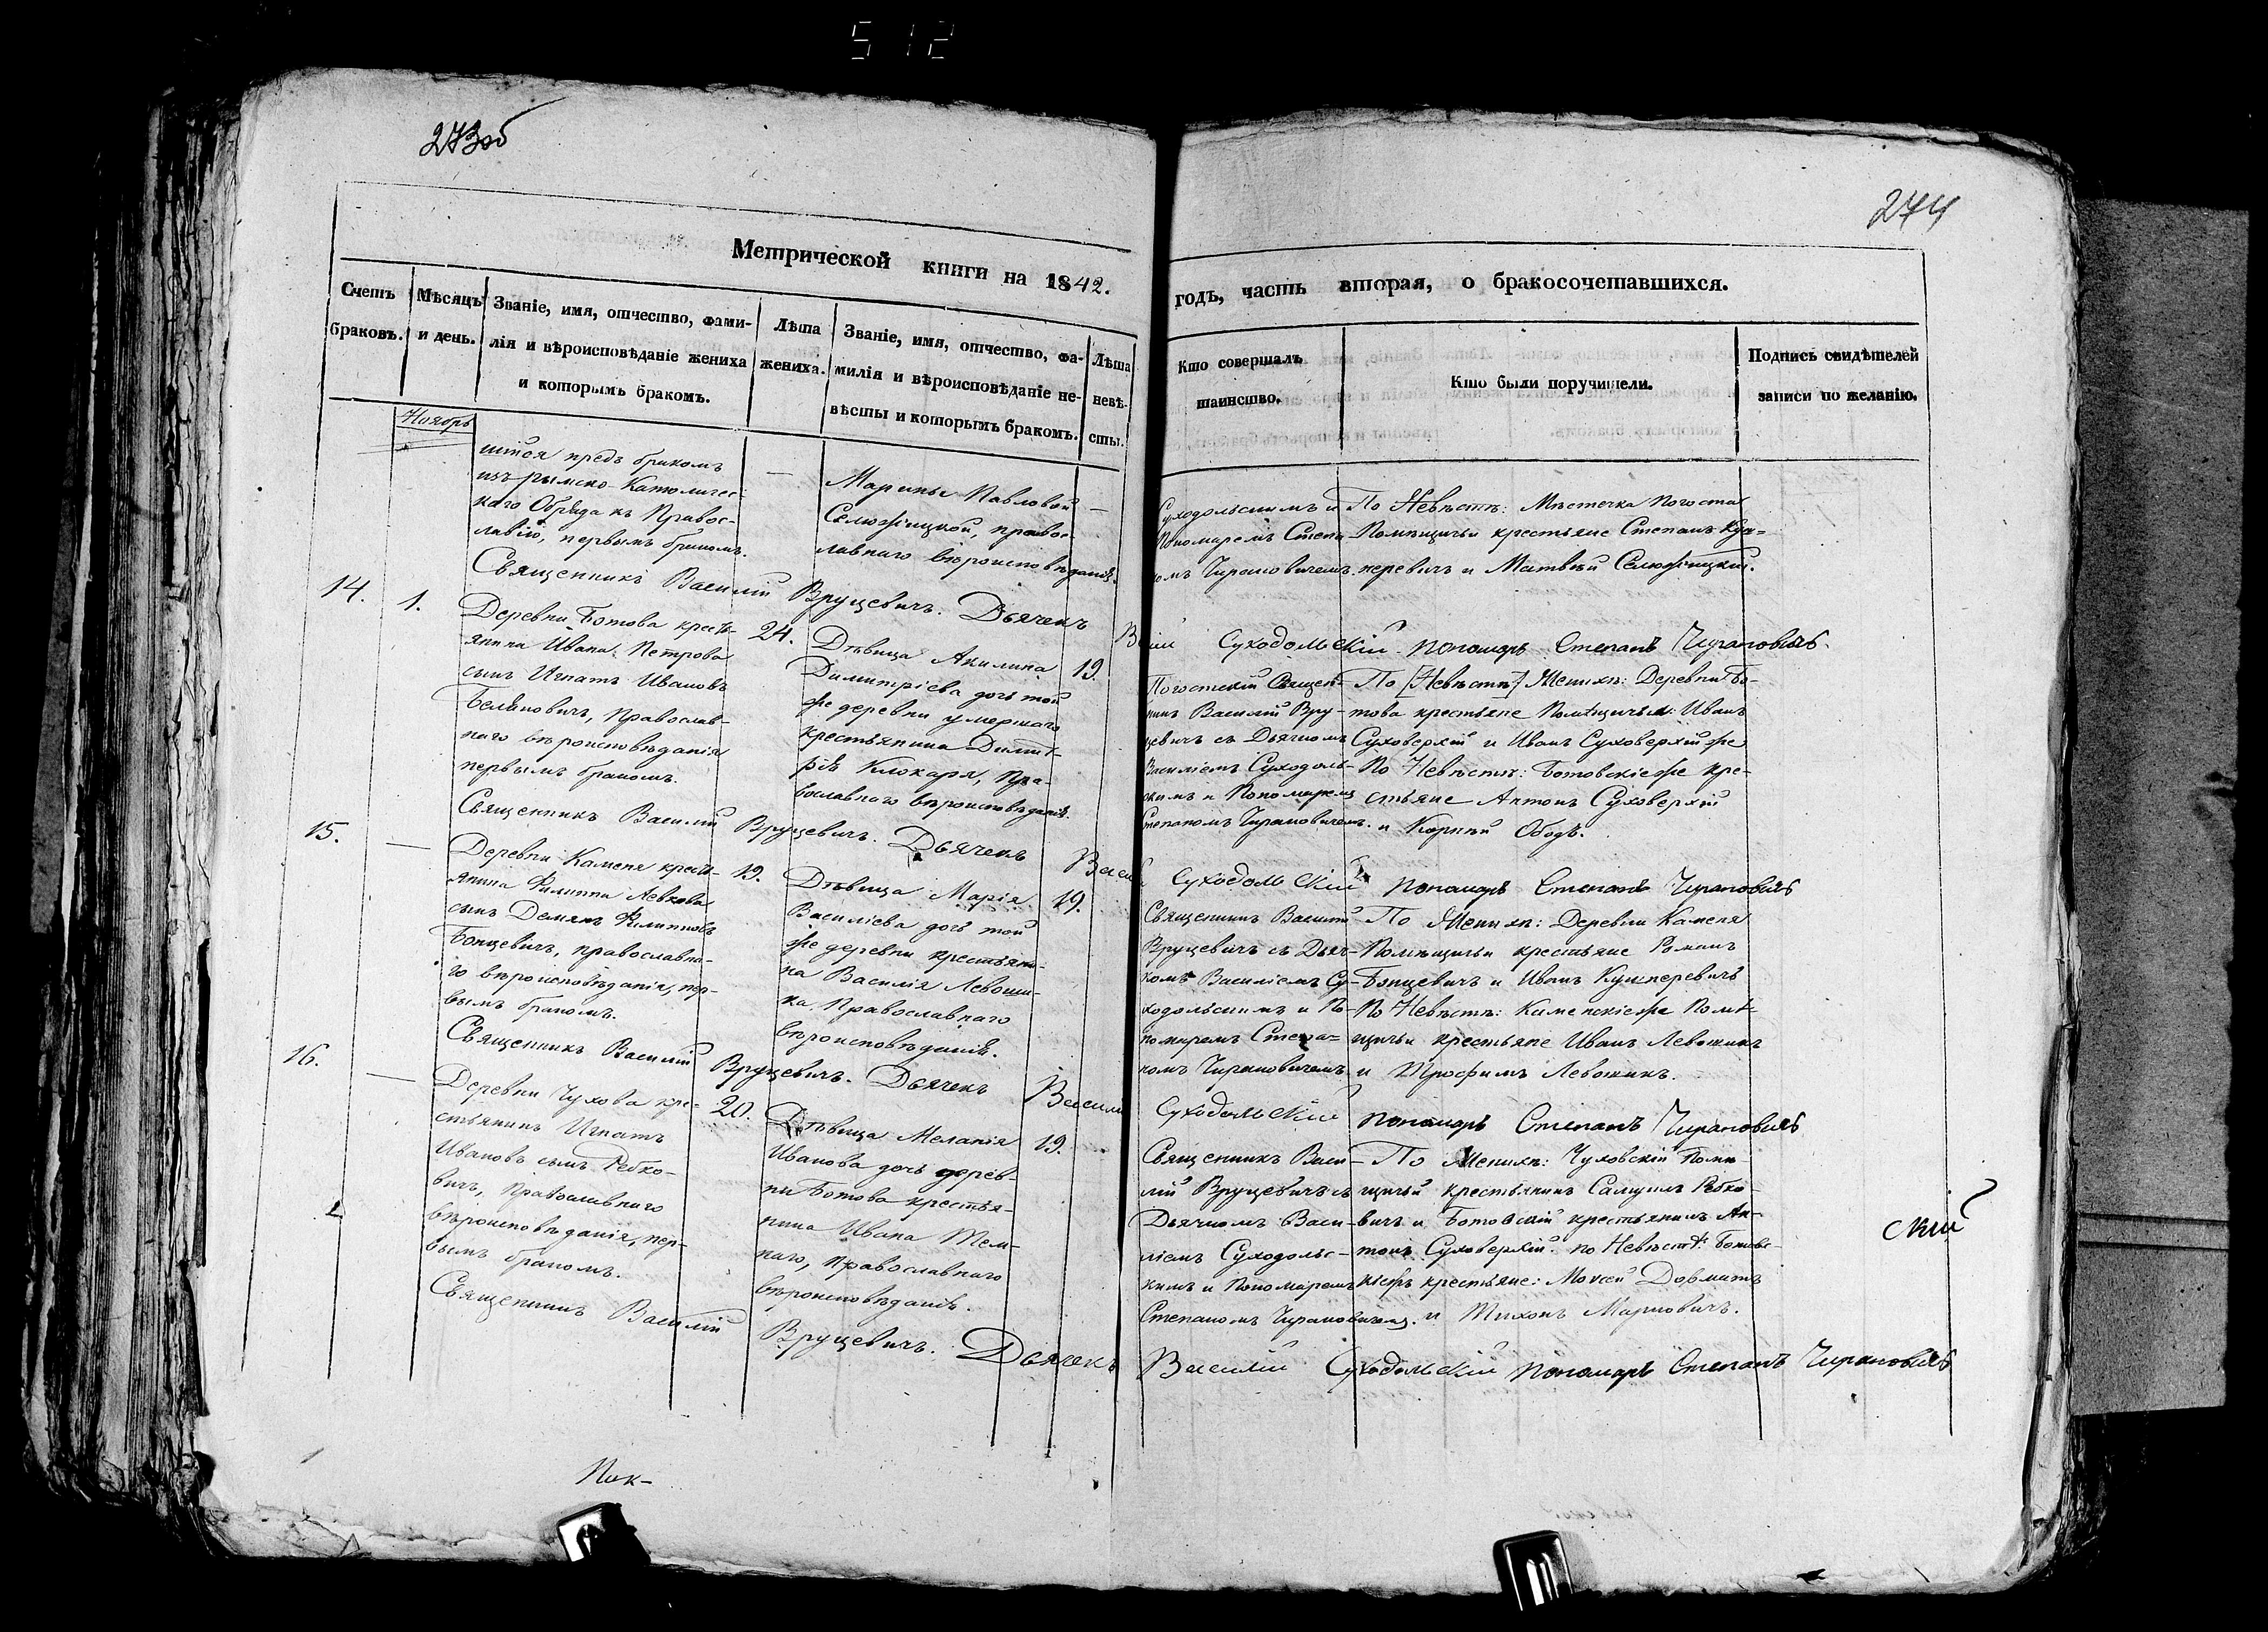 512
273об
274
Метрической книги на 1842.
годъ, часть вторая, о бракосочетавшихся.
Счетъ
браковъ.
Мѣсяцъ
и день.
Званіе, имя, отчество, фами-
лія и вѣроисповѣданіе жениха
и которымъ бракомъ.
Лѣта
жениха.
Званіе, имя, отчество, фа-
милія и вѣроисповѣданіе не-
вѣсты и которымъ бракомъ.
Лѣта
невѣ-
сты.
Кто совершалъ
таинство.
Кто были поручители.
Подпись свидѣтелей
записи по желанію.
Ноябрь
предъ бракомъ
изъ римско Католичес-
каго Обряда къ Правос-
лавію, первымъ бракомъ.
—
Павловой
Селюжицкой, правос-
лавнаго вѣроисповѣданія.
—
Суходольскимъ и
Пономаремъ Степа-
номъ Чирановичемъ.
По Невѣстѣ: Мѣстечка Погоста
Помѣщичьи крестьяне Степанъ Кун-
перевичъ и Матвѣй Селюжицкій.
Священникъ Василій Вруцевичъ. Дьячекъ Василій Суходольскій. пономаръ Степанъ Чирановичъ.
14.
1.
Деревни Ботова кресть-
янина Ивана Петрова
сынъ Игнатъ Ивановъ
Белановичъ, Православ-
наго вѣроисповѣданія
первымъ бракомъ.
24.
Дѣвица Акилина
Димитріева дочь той
же деревни умершаго
крестьянина Димит-
рія Клокаря, Пра-
вославнаго вѣроисповѣданія.
19.
Погостскій Священ-
никъ Василій Вру-
цевичъ съ Дьячкомъ
Василіемъ Суходоль-
скимъ и Пономаремъ
Степаномъ Чирановичемъ.
По [Невѣстѣ] Женихѣ: Деревни Бо-
това крестьяне Помѣщичьи: Иванъ
Суховерхій и Иванъ Суховерхій же
По Невѣстѣ: Ботовскіе же кре-
стьяне Антонъ Суховерхій
и Корнѣй Ободъ.
Священникъ Василій Вруцевичъ. Дьячекъ Василій Суходольскій пономаръ Степанъ Чирановичъ
15.
—
Деревни Каменя кресть-
янина Филиппа Левкова
сынъ Демянъ Филипповъ
Бонцевичъ, православна-
го вѣроисповѣданія, пер-
вымъ бракомъ.
19.
Дѣвица Марія
Василіева дочь той
же деревни крестьяни-
на Василія Левоши-
ка, Православнаго
вѣроисповѣданія.
19.
Священникъ Василій
Вруцевичъ съ Дьяч-
комъ Василіемъ Су-
ходольскимъ и По-
номаремъ Степа-
номъ Чирановичемъ.
По Женихѣ: Деревни Каменя
Помѣщичьи крестьяне Романъ
Бонцевичъ и Иванъ Кунперевичъ
По Невѣстѣ: Каменскіе же Помѣ-
щичьи крестьяне Иванъ Левошикъ
и Трофимъ Левошикъ.
Священникъ Василій Вруцевичъ. Дьячекъ Василій Суходольскій пономаръ Степанъ Чирановичъ
16.
—
Деревни Чухова кре-
стьянинъ Игнатъ
Ивановъ сынъ Ребко-
вичъ, Православнаго
вѣроисповѣданія, пер-
вымъ бракомъ.
20.
Дѣвица Меланія
Иванова дочь дерев-
ни Ботова крестья-
нина Ивана Тем-
наго, Православнаго
вѣроисповѣданія.
19.
Священникъ Васи-
лій Вруцевичъ съ
Дьячкомъ Васи-
ліемъ Суходольс-
кимъ и Пономаремъ
Степаномъ Чирановичемъ.
По Женихѣ: Чуховскій Помѣ-
щичій крестьянинъ Самуилъ Ребко-
вичъ и Ботовскій крестьянинъ Ан-
тонъ Суховерхій. по Невѣстѣ: Ботовс-
кіежъ крестьяне: Мокей Довматъ
и Тихонъ Марковичъ.
скій
Священникъ Василій Вруцевичъ. Дьячекъ Василій Суходольскій пономаръ Степанъ Чирановичъ